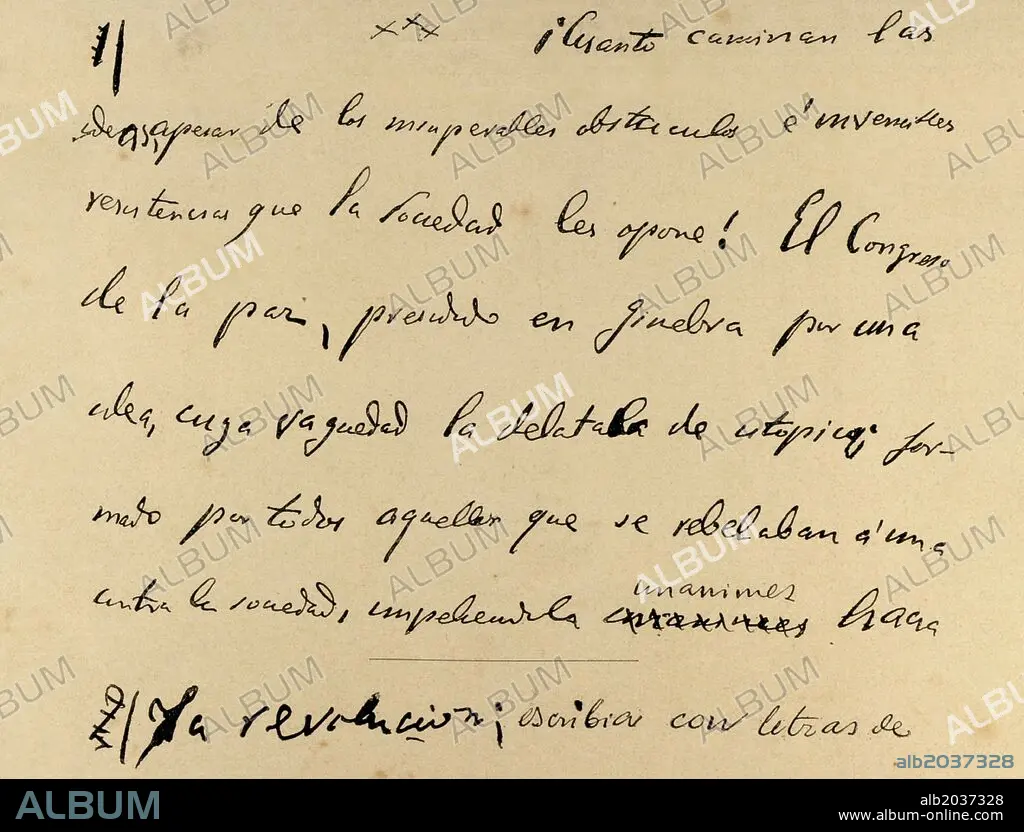 1/ xxx ¡Cuanto caminan las
ideas, apesar de los insuperables obstaculos é invencibles
resistencias que la Sociedad les opone! El Congreso
de la paz, presidido en Ginebra por una
idea, cuya vaguedad la delataba de utopica; for-
mado por todos aquellos que se rebelaban á una
contra la sociedad, impeliendola unanimes hacia
2/ La revolucion; escribia con letras de
ALBUM
alb2037328
ALBUM
alb2037328
www.album-online.com